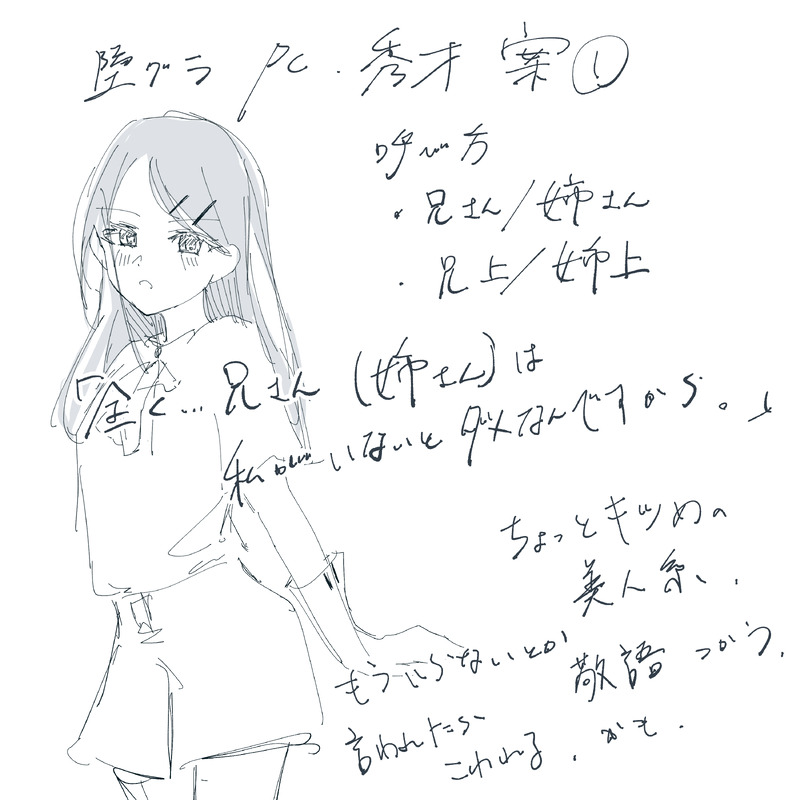 堕グラ PC. 秀才 案①
呼び方
・兄さん/姉さん
・兄上/姉上
「全く…兄さん(姉さん)は
私がいないとダメなんですから。」
ちょっとキツめの
美人系、
敬語つかう、
もういらないとか
言われたら
こわれる、かも.